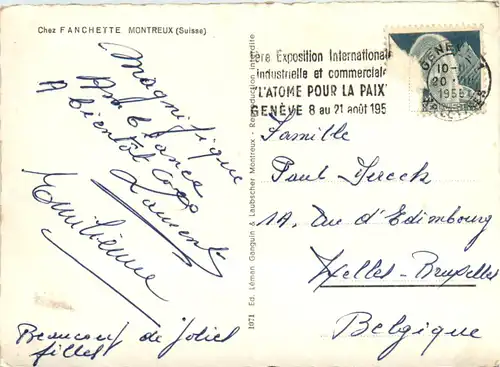 Chez FANCHETTE MONTREUX (Suisse)
Magnifique
Ambiance
A bientôt
Laurent
Emilienne
Beaucoup de jolies
filles
1071 Ed. Léman Ganguin & Laubscher Montreux - Reproduction interdite
1ère Exposition Internationale
industrielle et commerciale
"L'ATOME POUR LA PAIX"
GENÈVE 8 au 21 août 195
GENÈVE
10-11
20 VIII
1958
Famille
Paul Jereck
1A. Rue d'Edimbourg
Ixelles-Bruxelles
Belgique